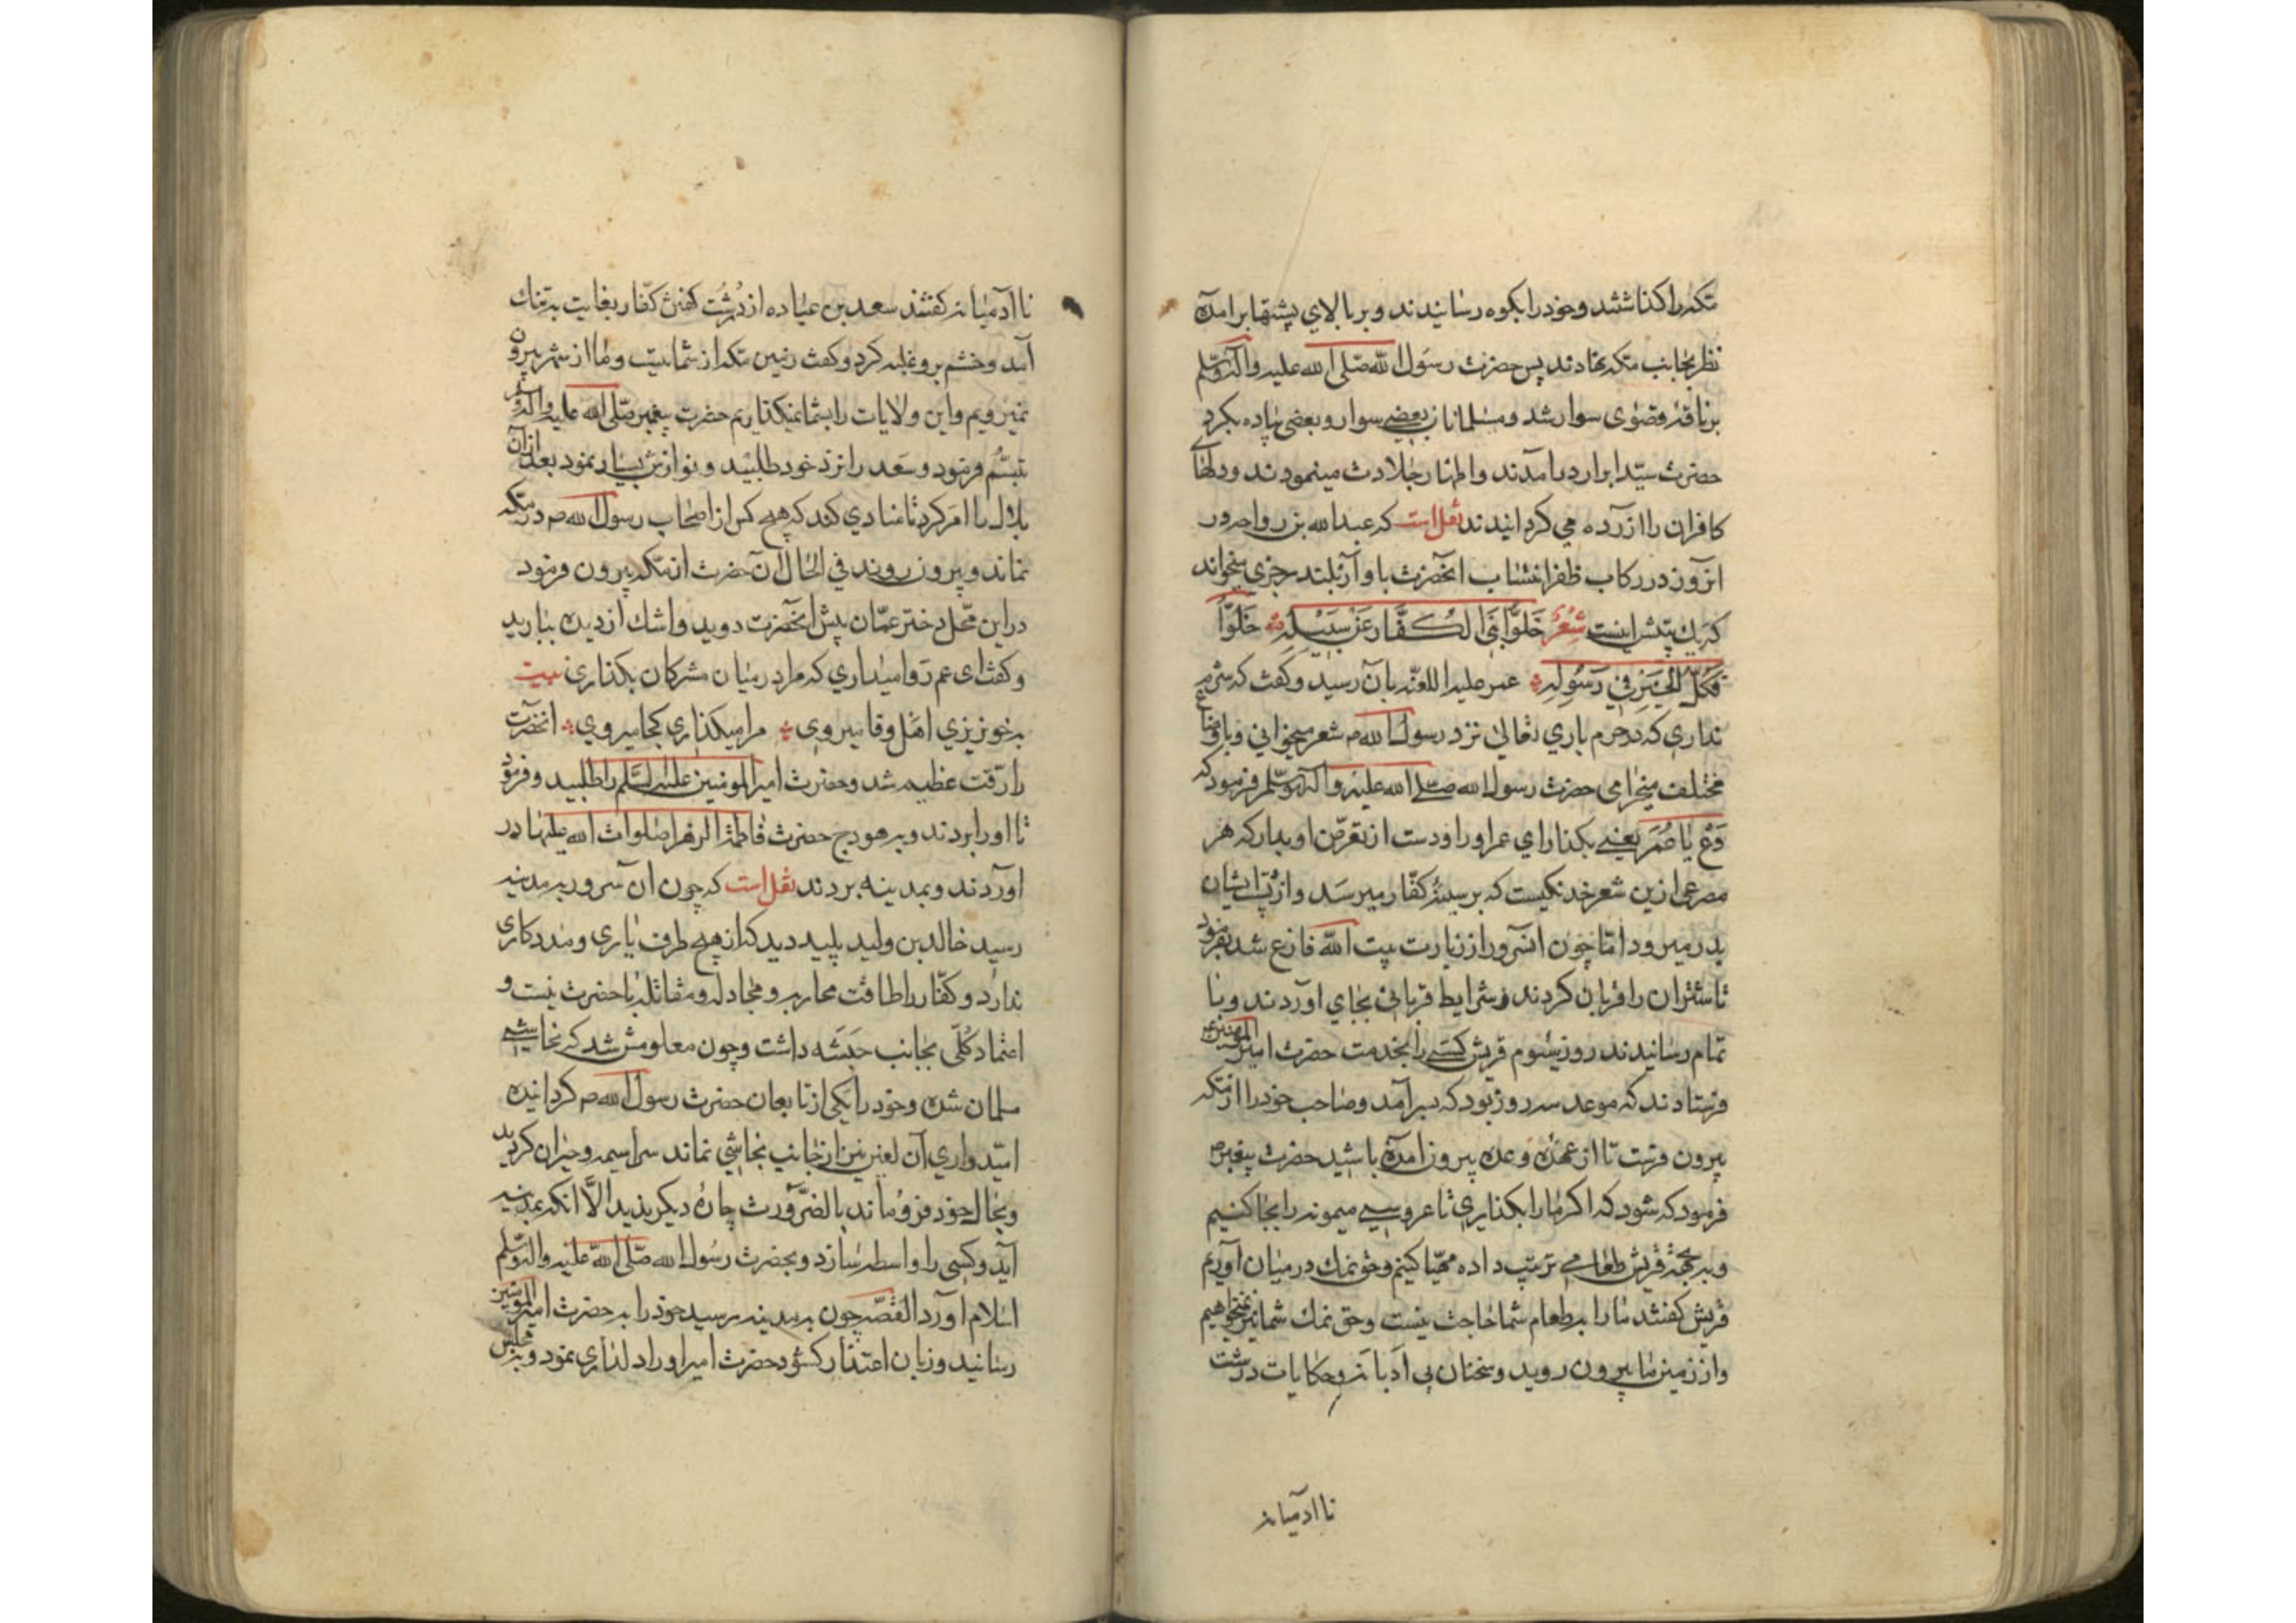 مکه را گذاشتند وخود را بکوه رسانیدند وبر بالای پشتها برامده
نظر بجانب مکه نهادند پس حضرت رسول الله صلی الله علیه واله وسلم
بر ناقه قصوی سوار شد ومسلمانان بعضی سوار وبعضی پیاده بکرد
حضرت سید ابرار در آمدند واظهار جلادت مینمودند ودلهای
کافران را ازرده می کردانیدند نقل است که عبدالله بن رواحه در
انروز در رکاب ظفر انتساب انحضرت باواز بلند رجزی میخواند
که یک بیتش اینست شعر خَلّوا بَنی الکُفّار عَن سَبیلِه خَلّوا
فَکُلّ الخَیر فی رَسُولِه عمر علیه اللعنه بان رسید وکفت که شرم
نداری که در حرم باری تعالی نزد رسول الله ص شعر میخوانی وباوضاع
مختلف میخرامی حضرت رسول الله صلی الله علیه واله وسلم فرمود که
دَعْ یا عُمَر یعنی بکذار ای عمر او را ودست از تعرض او بدار که هر
مصرعی ازین شعر خدنکیست که بر سینهٔ کفار میرسد واز پشت ایشان
بدر میرود اما چون انسرور از زیارت بیت الله فارغ شد بفرمود
تا شتران را قربان کردند وشرایط قربانی بجای اوردند وبا
تمام رسانیدند روز سوم قریش کسی را بخدمت حضرت امیر المومنین ع
فرستادند که موعد سه روز بود که سر آمد وصاحب خود را از مکه
بیرون فرست تا از عهدهٔ وعده بیرون امده باشید حضرت پیغمبر ص
فرمود که شود که اکر ما را بکذاری تا عروسی میمونه را بجا کنیم
وبه جهة قریش طعامی ترتیب داده مهیا کنیم وحق نمک در میان اوریم
قریش کفتند ما را بطعام شما حاجت نیست وحق نمک شما نیز نمیخواهیم
واز زمین ما بیرون روید وسخنان بی ادبانه وحکایات درشت
نا ادمیانه
نا آدمیانه کفتند سعد بن عباده از دُرُشت کفتن کفار بغایت به تنک
آمد وخشم برو غلبه کرد وکفت زمین مکه از شما نیست وما از شهر بیرون
نمیرویم واین ولایات را بشما نمیکذاریم حضرت پیغمبر صلی الله علیه واله وسلم
تبسم فرمود وسعد را نزد خود طلبید ونوازش بسیار نمود بعد از آن
بلال را امر کرد تا منادی کند که هیچ کس از اصحاب رسول الله ص در مکه
نماند وبیرون روند فی الحال آن حضرت از مکه بیرون فرمود
در این محل دختر عمان پیش انحضرت دوید واشک از دیده ببارید
وکفت ای عم روا میداری که مرا در میان مشرکان بکذاری بیت
بخونریزی اهل وفا میروی مرا میکذاری کجا میروی انحضرت
را رقت عظیم شد وحضرت امیر المومنین علیه السلم را طلبید وفرمود
تا او را بردند وبه هودج حضرت فاطمة الزهرا صلوات الله علیها در
اوردند وبمدینه بردند نقل است که چون ان سرور به مدینه
رسید خالد بن ولید پلید دید که از هیچ طرف یاری ومددکاری
ندارد وکفار را طاقت محاربه ومجادله ومقاتله با حضرت نیست و
اعتماد کلی بجانب حبشه داشت وچون معلومش شد که نجاشی
مسلمان شده وخود را یکی از تابعان حضرت رسول الله ص کردانیده
امیدواری آن لعین نیز از جانب نجاشی نماند سراسیمه وحیران کردید
وبحال خود فرو ماند بالضرورت چارهٔ دیکر ندید الّا انکه بمدینه
آید وکسی را واسطه سازد وبحضرت رسول الله صلی الله علیه واله وسلم
اسلام اورد القصه چون به مدینه رسید خود را به حضرت امیر المومنین
رسانید وزبان اعتذار کشود حضرت امیر او را دلداری نمود وبه مجلس